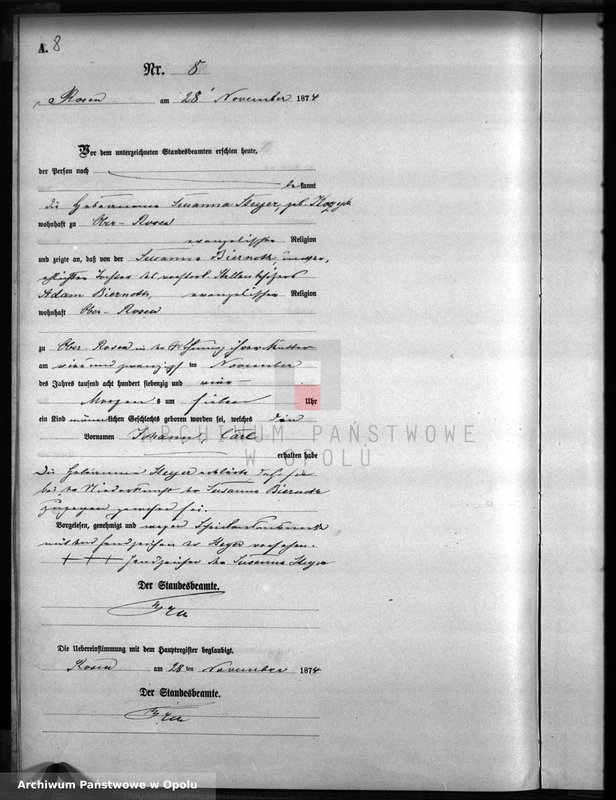 A. 8
Nr. 8
Rosen am 28 November 1874
Vor dem unterzeichneten Standesbeamten erschien heute,
der Person nach
bekannt
die Hebeamme Susanna Heyer, geb.
wohnhaft zu Ober-Rosen
evangelischer Religion
und zeigte an, daß von der Susanna Biernoth,
Tochter des verstorb. Stellenbesitzers
Adam Biernoth, evangelischer Religion
wohnhaft Ober-Rosen
zu Ober-Rosen in der Wohnung ihrer Mutter
am vier und zwanzigsten November
des Jahres tausend acht hundert siebenzig und vier
Morgens um sieben Uhr
ein Kind männlichen Geschlechts geboren worden sei, welches den
Vornamen Johann, Carl
erhalten habe
Die Hebeamme Heyer erklärte daß sie
bei der Niederkunft der Susanna Biernoth
zugegen gewesen sei.
Vorgelesen, genehmigt und wegen Schreibensunkunde
mit dem Handzeichen der Heyer versehen.
+ + + Handzeichen der Susanna Heyer
Der Standesbeamte.
Die Uebereinstimmung mit dem Hauptregister beglaubigt.
Rosen am 28 ten November 1874
Der Standesbeamte.
ARCHIWUM PAŃSTWOWE
W OPOLU
Archiwum Państwowe w Opolu